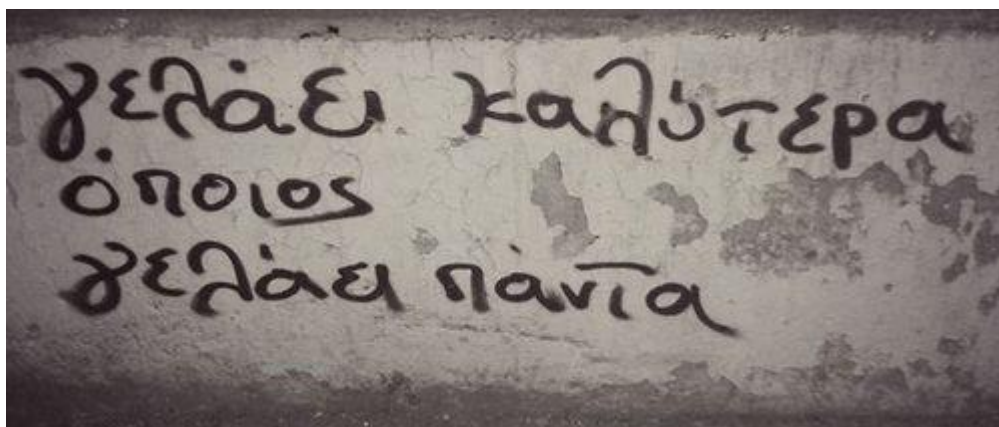 γελάει καλύτερα
όποιος
γελάει πάντα